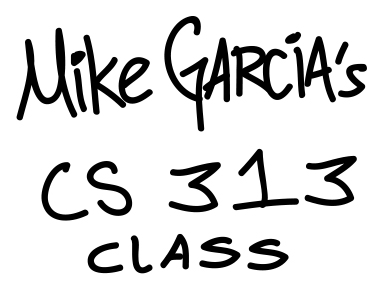 Mike GARCiA's
CS 313
CLASS